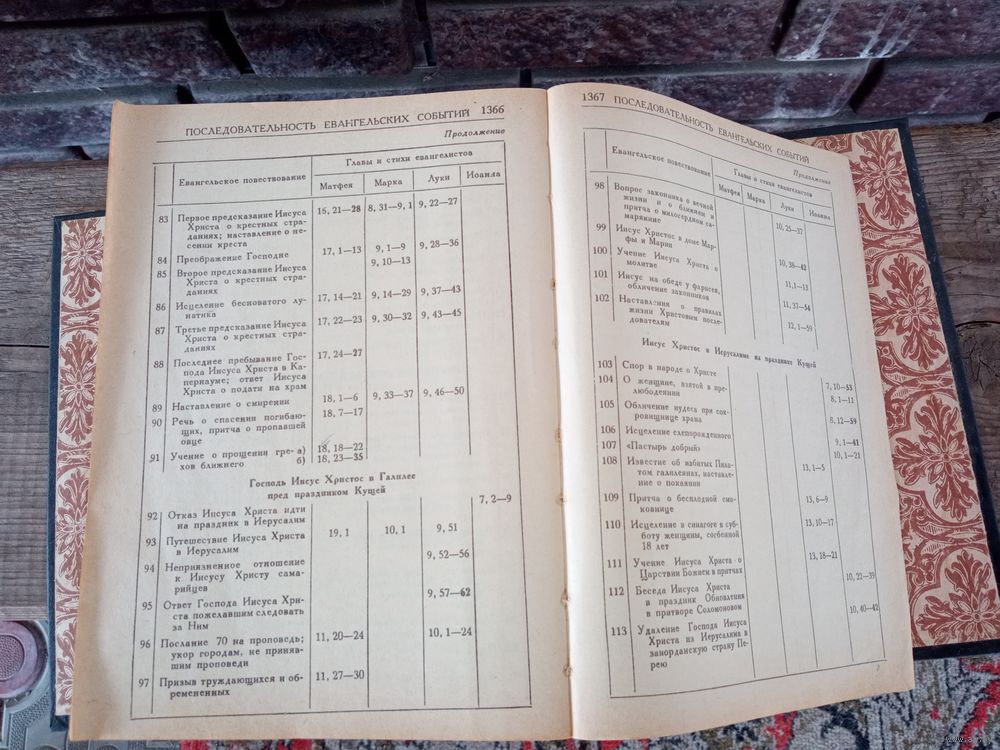 ПОСЛЕДОВАТЕЛЬНОСТЬ ЕВАНГЕЛЬСКИХ СОБЫТИЙ 1366
Продолжение
Евангельское повествование
Главы и стихи евангелистов
Матфея Марка Луки Иоанна
83 Первое предсказание Иисуса 16, 21—28 8, 31—9, 1 9, 22—27
Христа о крестных стра-
даниях; наставление о не-
сении креста
84 Преображение Господне 17, 1—13 9, 1—9 9, 28—36
85 Второе предсказание Иисуса 9, 10—13
Христа о крестных стра-
даниях
86 Исцеление бесноватого лу- 17, 14—21 9, 14—29 9, 37—43
натика
87 Третье предсказание Иисуса 17, 22—23 9, 30—32 9, 43—45
Христа о крестных стра-
даниях
88 Последнее пребывание Гос- 17, 24—27
пода Иисуса Христа в Ка-
пернауме; ответ Иисуса
Христа о подати на храм
89 Наставление о смирении 18, 1—6 9, 33—37 9, 46—50
90 Речь о спасении погибаю- 18, 7—17
щих, притча о пропавшей
овце
91 Учение о прощении гре- а) 18, 18—22
хов ближнего б) 18, 23—35
Господь Иисус Христос в Галилее
пред праздником Кущей
92 Отказ Иисуса Христа идти 7, 2—9
на праздник в Иерусалим
93 Путешествие Иисуса Христа 19, 1 10, 1 9, 51
в Иерусалим
94 Неприязненное отношение 9, 52—56
к Иисусу Христу сама-
рийцев
95 Ответ Господа Иисуса Хри- 9, 57—62
ста пожелавшим следовать
за Ним
96 Послание 70 на проповедь; 11, 20—24 10, 1—24
укор городам, не приняв-
шим проповеди
97 Призыв труждающихся и об- 11, 27—30
ремененных
1367 ПОСЛЕДОВАТЕЛЬНОСТЬ ЕВАНГЕЛЬСКИХ СОБЫТИЙ
Продолжение
Евангельское повествование
Главы и стихи евангелистов
Матфея Марка Луки Иоанна
98 Вопрос законника о вечной 10, 25—37
жизни и о ближнем и
притча о милосердном са-
марянине
99 Иисус Христос в доме Мар- 10, 38—42
фы и Марии
100 Учение Иисуса Христа о 11, 1—13
молитве
101 Иисус на обеде у фарисея, 11, 37—54
обличение законников
102 Наставления о правилах 12, 1—59
жизни Христовым после-
дователям
Иисус Христос в Иерусалиме на празднике Кущей
103 Спор в народе о Христе 7, 10—53
104 О женщине, взятой в пре- 8, 1—11
любодеянии
105 Обличение иудеев при сок- 8, 12—59
ровищнице храма
106 Исцеление слепорожденного 9, 1—41
107 «Пастырь добрый» 10, 1—21
108 Известие об избитых Пила- 13, 1—5
том галилеянах, наставле-
ние о покаянии
109 Притча о бесплодной смо- 13, 6—9
ковнице
110 Исцеление в синагоге в суб- 13, 10—17
боту женщины, согбенной
18 лет
111 Учение Иисуса Христа о 13, 18—21
Царствии Божием в притчах
112 Беседа Иисуса Христа 10, 22—39
в праздник Обновления
в притворе Соломоновом
113 Удаление Господа Иисуса 10, 40—42
Христа из Иерусалима в
заиорданскую страну Пе-
рею